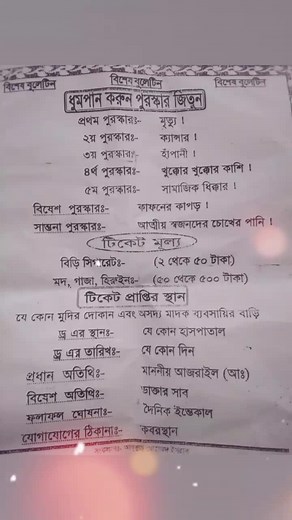 বিশেষ বুলেটিন বিশেষ বুলেটিন বিশেষ বুলেটিন
ধুমপান করুন পুরস্কার জিতুন
প্রথম পুরস্কারঃ- মৃত্যু !
২য় পুরস্কারঃ- ক্যান্সার !
৩য় পুরস্কারঃ- হাঁপানী !
৪র্থ পুরস্কারঃ- খুক্কোর খুক্কোর কাশি !
৫ম পুরস্কারঃ- সামাজিক ধিক্কার !
বিশেষ পুরস্কারঃ- কাফনের কাপড় !
সান্তনা পুরস্কারঃ- আত্মীয় স্বজনদের চোখের পানি !
টিকেট মূল্য
বিড়ি সিগারেট:- (২ থেকে ৫০ টাকা)
মদ, গাজা, হিরুইনঃ- (৫০ থেকে ৫০০ টাকা)
টিকেট প্রাপ্তির স্থান
যে কোন মুদির দোকান এবং অসদ্য মাদক ব্যবসায়ির বাড়ি
ড্র এর স্থানঃ- যে কোন হাসপাতাল
ড্র এর তারিখঃ- যে কোন দিন
প্রধান অতিথিঃ- মাননীয় আজরাইল (আঃ)
বিশেষ অতিথিঃ- ডাক্তার সাব
ফলাফল ঘোষনাঃ- দৈনিক ইন্তেকাল
যোগাযোগের ঠিকানাঃ- কবরস্থান